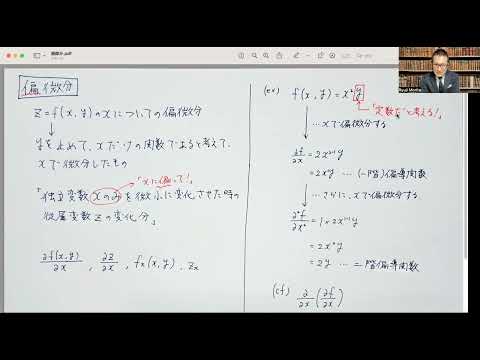 偏微分
z=f(x,y)のxについての偏微分
↓
yを止めて、xだけの関数であると考えて、
xで微分したもの
「xに偏って!」
「独立変数xのみを微小に変化させた時の
従属変数zの変化分」
∂f(x,y)/∂x , ∂z/∂x , fx(x,y) , zx
(ex) f(x,y)=x²y
「定数だ」と考える!
↓ …xで偏微分する
∂f/∂x = 2x²⁻¹y
= 2xy … (一階)偏導関数
↓ …さらに、xで偏微分する
∂²f/∂x² = 1×2x¹⁻¹y
= 2x⁰y
= 2y … 二階偏導関数
(cf) ∂/∂x(∂f/∂x)